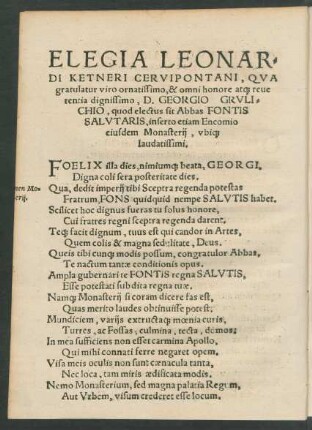 ELEGIA LEONAR-
DI KETNERI CERVIPONTANI, QVA
gratulatur viro ornatissimo, & omni honore atq; reue
rentia dignissimo, D. GEORGIO GRVLI-
CHIO, quod electus sit Abbas FONTIS
SALVTARIS, inserto etiam Encomio
eiusdem Monasterij, vbiq;
laudatissimi.
FOELIX illa dies, nimiumq; beata, GEORGI,
Digna coli sera posteritate dies.
Qua, dedit imperij tibi Sceptra regenda potestas
Fratrum, FONS quidquid nempe SALVTIS habet.
Scilicet hoc dignus fueras tu solus honore,
Cui fratres regni sceptra regenda darent.
Teq; facit dignum, tuus est qui candor in Artes,
Quem colis & magna sedulitate, Deus.
Queis tibi cunq; modis possum, congratulor Abbas,
Te nactum tantæ conditionis opus.
Ampla gubernari te FONTIS regna SALVTIS,
Esse potestati subdita regna tuæ.
Namq; Monasterij si coram dicere fas est,
Quas merito laudes obtinuisse potest.
Mundiciem, varijs extructaq; mœnia curis,
Turres, ac Fossas, culmina, tecta, domos;
In mea sufficiens non esset carmina Apollo,
Qui mihi connati ferre negaret opem.
Visa meis oculis non sunt cœnacula tanta,
Nec loca, tam miris ædificata modis.
Nemo Monasterium, sed magna palatia Regum,
Aut Vrbem, visum crederet esse locum.